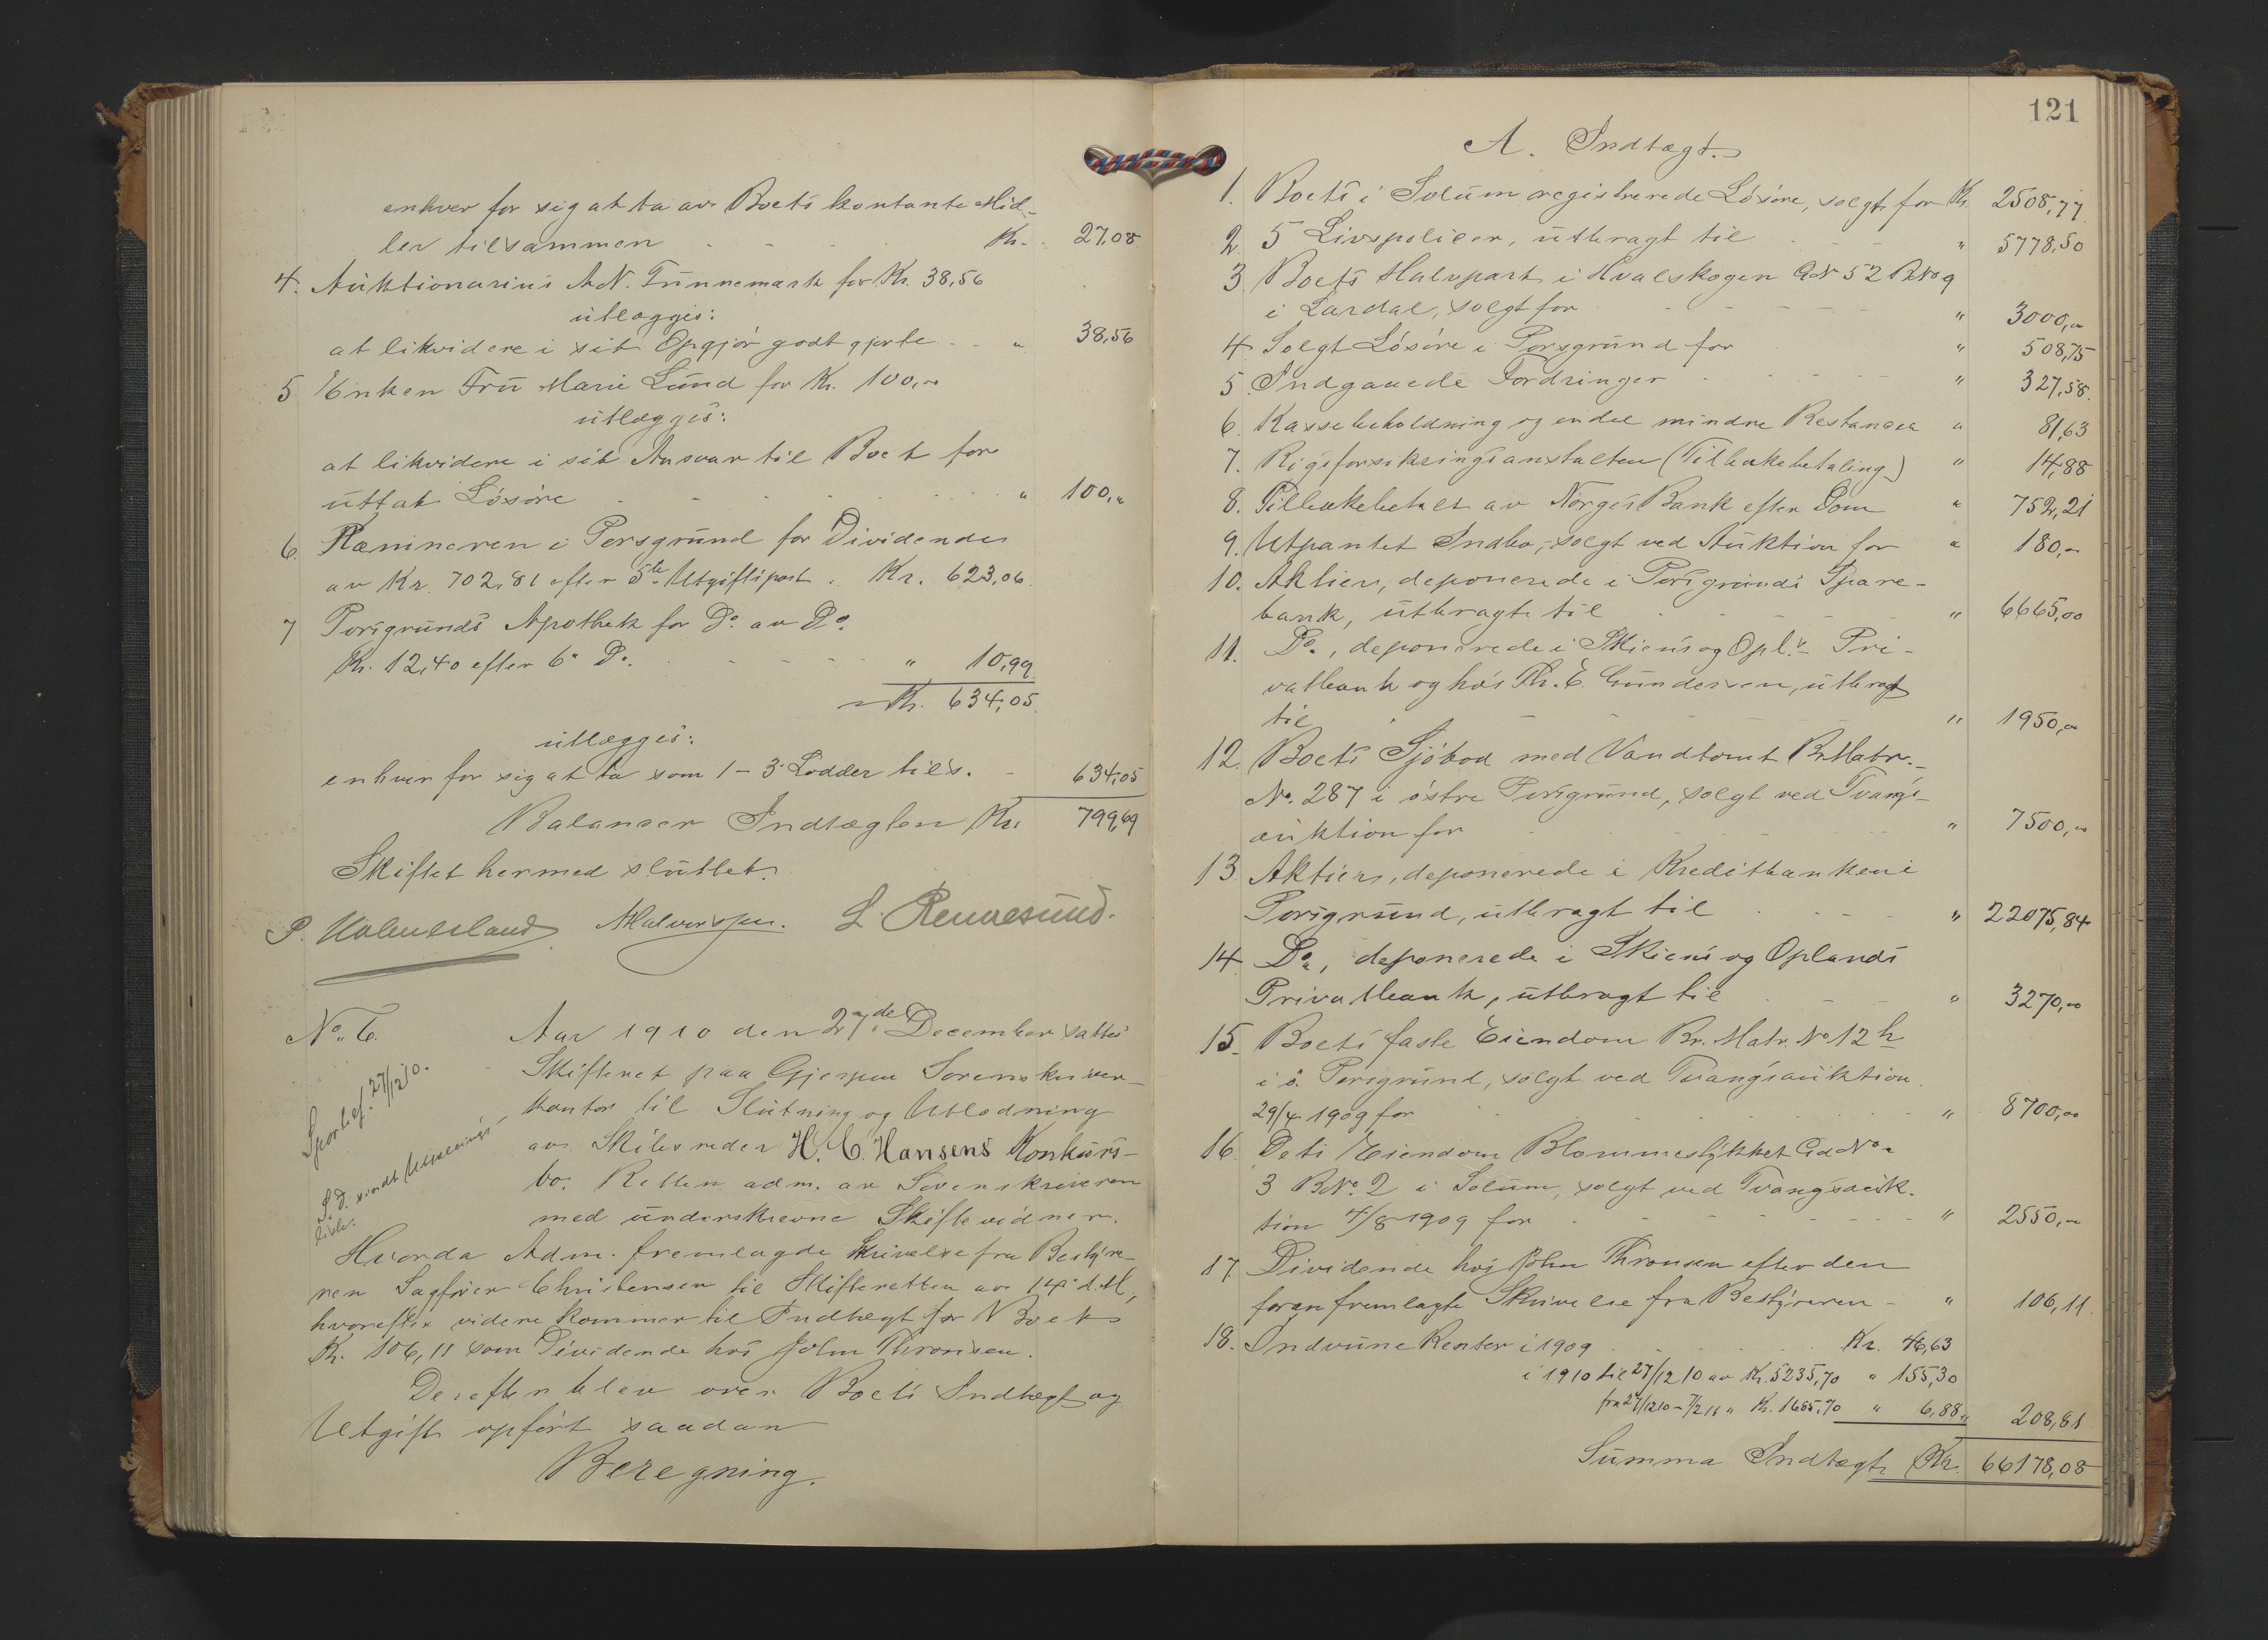 enhver for sig at ta av Boets kontante Mid-
ler tilsammen Kr. 27,08
4. Auktionarius A.N. Tunnemark for Kr. 38,56
utlægges:
at likvidere i sit Opgjør godtgjorte " 38,56
5 Enken Fru Marie Lund for Kr. 100,00
utlægges:
at likvidere i sit Ansvar til Boet for
uttat Løsøre " 100,"
6. Kæmneren i Porsgrund for Dividende
av Kr. 702,81 efter 5te Utgiftspost . Kr. 623,06.
7 Porsgrunds Apothek for Do. av Do.
Kr. 12,40 efter 6" Do. " 10,99.
Kr. 634,05.
utlægges:
enhver for sig at ta som 1-3 Lodder tils. - 634,05
Balancer Indtægten Kr. 799,69
Skiftet hermed sluttet.
P. Holmesland AHalvorsen. L. Rennesund.
No. 6. Aar 1910 den 27de December sattes
Skifteret paa Gjerpen Sorenskriver-
kontor til Slutning og Utlodning
av Skibsreder H. C. Hansens Konkurs-
bo. Retten adm. av Sorenskriveren
med underskrevne Skiftevidner.
27/12 10.
Hvorda Adm. fremlagde Skrivelse fra Bestyre-
ren Sagfører Christensen til Skifteretten av 14 d.M,
hvorefter videre kommer til Indtægt for Boet
Kr. 106,11 som Dividende hos John Thronsen.
Derefter blev over Boets Indtægt og
Utgift opført saadan
Beregning.
121
A. Indtægt.
1. Boets i Solum registrerede Løsøre, solgt for Kr. 2508,77
2 5 Livspolicer, utbragt til " 5778,50
3 Boets Halvpart i Hvalskogen GNo 52 BNo 9
i Lardal, solgt for " 3000,00
4 Solgt Løsøre i Porsgrund for " 508,75
5. Indgaaede Fordringer " 327,58.
6. Kassebeholdning og endel mindre Restancer " 81,63
7. Rigsforsikringsanstalten (Tilbakebetaling) " 14,88
8. Tilbakebetalt av Norges Bank efter Dom " 752,21
9. Utpantet Indbo, solgt ved Auktion for " 180,00
10. Aktier, deponerede i Porsgrunds Spare-
bank, utbragt til " 6665,00
11. Do., deponerede i Skiens og Opl.s Pri-
vatbank og hos Th. E. Gundersen, utbragt
til " 1950,00
12. Boets Sjøbod med Vandtomt Br.Matr.-
No. 287 i østre Porsgrund, solgt ved Tvangs-
auktion for " 7500,00
13 Aktier, deponerede i Kreditbanken i
Porsgrund, utbragt til " 22075,84
14 Do., deponerede i Skiens og Oplands
Privatbank, utbragt til " 3270,00
15. Boets faste Eiendom Br. Matr. No 12 h
i ø. Porsgrund, solgt ved Tvangsauktion
29/4 1909 for " 8700,00
16. Dets Eiendom Blommeslykket GdNo
3 BNo. 2 i Solum, solgt ved Tvangsauk-
tion 4/8 1909 for " 2550,00
17. Dividende hos John Thronsen efter den
foran fremlagte Skrivelse fra Bestyreren - " 106,11.
18. Indvunne Renter i 1909 Kr. 46,63
i 1910 til 27/12 10 av Kr. 5235,70 " 155,30
fra 27/12 10 - 7/2 11 " Kr. 1685,70 " 6,88 208,81
Summa Indtægt Kr. 66178,08